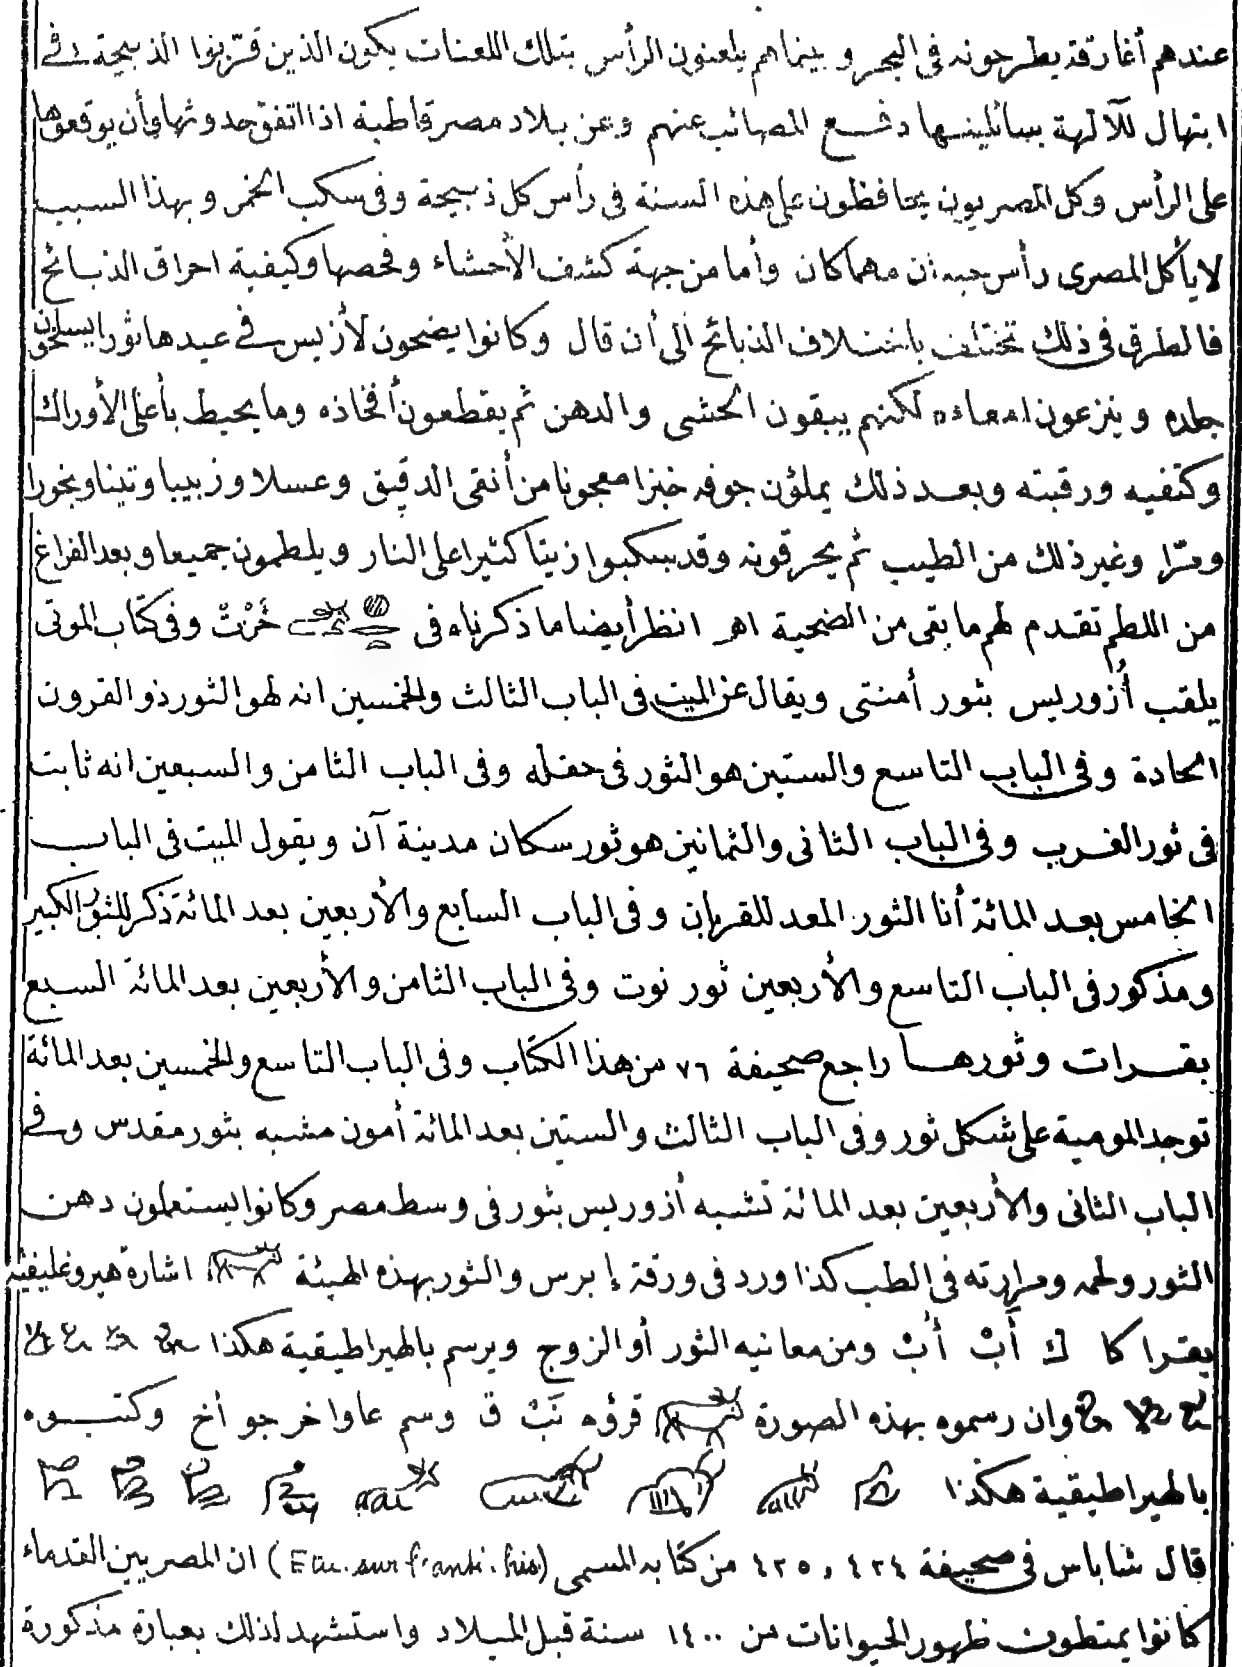 عندهم أغارقة يطرحونه فى البحر و بينما هم يلعنون الرأس بتلك اللعنات يكون الذين قرّبوا الذبيحة فى
ابتهال للآلهة يسائلينها دفع المصائب عنهم وعن بلاد مصر قاطبة اذا اتفق حدوثها وأن يوقعوها
على الرأس وكل المصريون يحافظون على هذه السنة فى رأس كل ذبيحة وفى سكب الخمر و بهذا السبب
لا يأكل المصرى رأس حيوان مهما كان وأما من جهة كشف الأحشاء وفحصها وكيفية احراق الذبائح
فالطرق فى ذلك تختلف باختلاف الذبائح الى أن قال وكانوا يضحون لأزيس فى عيدها ثورا يسلخون
جلده وينزعون امعاءه لكنهم يبقون الحشى والدهن ثم يقطعون أفخاذه وما يحيط بأعلى الأوراك
وكتفيه ورقبته وبعد ذلك يملؤن جوفه خبزا معجونا من أنقى الدقيق وعسلا وزبيبا وتينا وبخورا
ومرّا وغير ذلك من الطيب ثم يحرقونه وقد سكبوا زيتا كثيرا على النار ويلطمون جميعا وبعد الفراغ
من اللطم تقدم لهم ما بقى من الضحية اهـ انظر أيضا ما ذكرناه فى خَرْتْ وفى كتاب الموتى
يلقب أُزوريس بثور أمنتى ويقال عن الميت فى الباب الثالث والخمسين انه لهو الثور ذو القرون
الحادة وفى الباب التاسع والستين هو الثور فى حقله وفى الباب الثامن والسبعين انه ثابت
فى ثور الغرب وفى الباب الثانى والثمانين هو ثور سكان مدينة آن ويقول الميت فى الباب
الخامس بعد المائة أنا الثور المعد للقربان وفى الباب السابع والأربعين بعد المائة ذكر للثور الكبير
ومذكور فى الباب التاسع والأربعين ثور نوت وفى الباب الثامن والأربعين بعد المائة السبع
بقرات وثورها راجع صحيفة ٧٦ من هذا الكتاب وفى الباب التاسع والخمسين بعد المائة
توجد المومية على شكل ثور وفى الباب الثالث والستين بعد المائة أمون مشبه بثور مقدس وفى
الباب الثانى والأربعين بعد المائة تشبه أزوريس بثور فى وسط مصر وكانوا يستعملون دهن
الثور ولحمه ومرارته فى الطب كذا ورد فى ورقة إبرس والثور بهذه الهيئة اشارة هيروغليفية
يقرا كا ك أَبْ أُبْ ومن معانيه الثور أو الزوج ويرسم بالهيراطيقية هكذا
وان رسموه بهذه الصورة قرؤه نَبْ ق وسم عاوا خرجو أخ وكتبوه
بالهيراطيقية هكذا
قال شاباس فى صحيفة ٤٢٤ , ٤٢٥ من كتابه المسمى (Etu. sur l'anti. his) ان المصريين القدماء
كانوا يمتطون ظهور الحيوانات من ١٤٠٠ سنة قبل الميلاد واستشهد لذلك بعبارة مذكورة